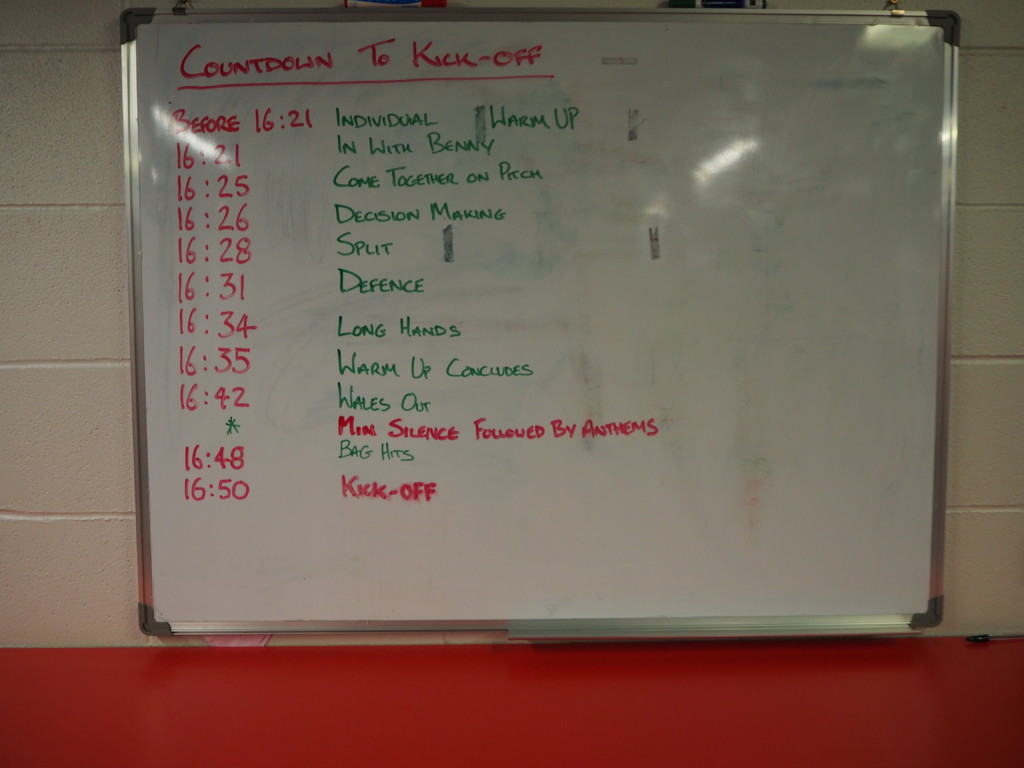 COUNTDOWN TO KICK-OFF
BEFORE 16:21 INDIVIDUAL WARM UP
16:21 IN WITH BENNY
16:25 COME TOGETHER ON PITCH
16:26 DECISION MAKING
16:28 SPLIT
16:31 DEFENCE
16:34 LONG HANDS
16:35 WARM UP CONCLUDES
16:42 WALES OUT
* MIN SILENCE FOLLOWED BY ANTHEMS
16:48 BAG HITS
16:50 KICK-OFF